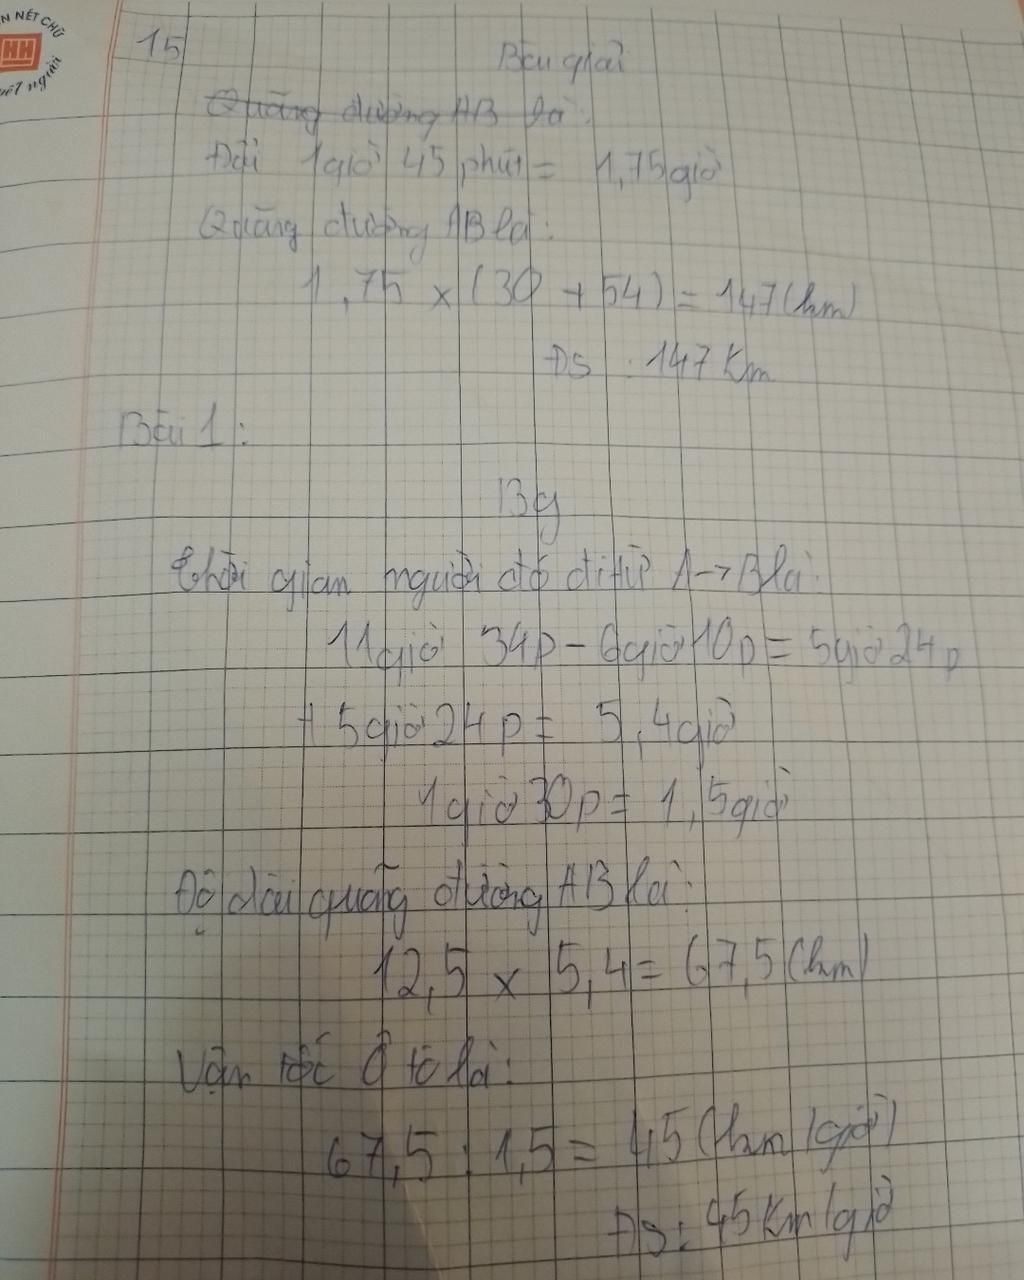 N NÉT CHỮ
HH
nết người
15
Bài giải
Quãng đường AB là:
Đổi 1giờ 45 phút = 1,75giờ
Quãng đường AB là:
1,75 x (30 + 54) = 147(km)
ĐS : 147 Km
Bài 1:
Bg
Thời gian người đó đi từ A→B là:
11giờ 34p - 6giờ 10p = 5giờ 24p
+ 5giờ 24p = 5,4giờ
1giờ 30p = 1,5giờ
Độ dài quãng đường AB là:
12,5 x 5,4 = 67,5 (km)
Vận tốc ô tô là:
67,5 : 1,5 = 45 (km/giờ)
ĐS: 45 Km/giờ